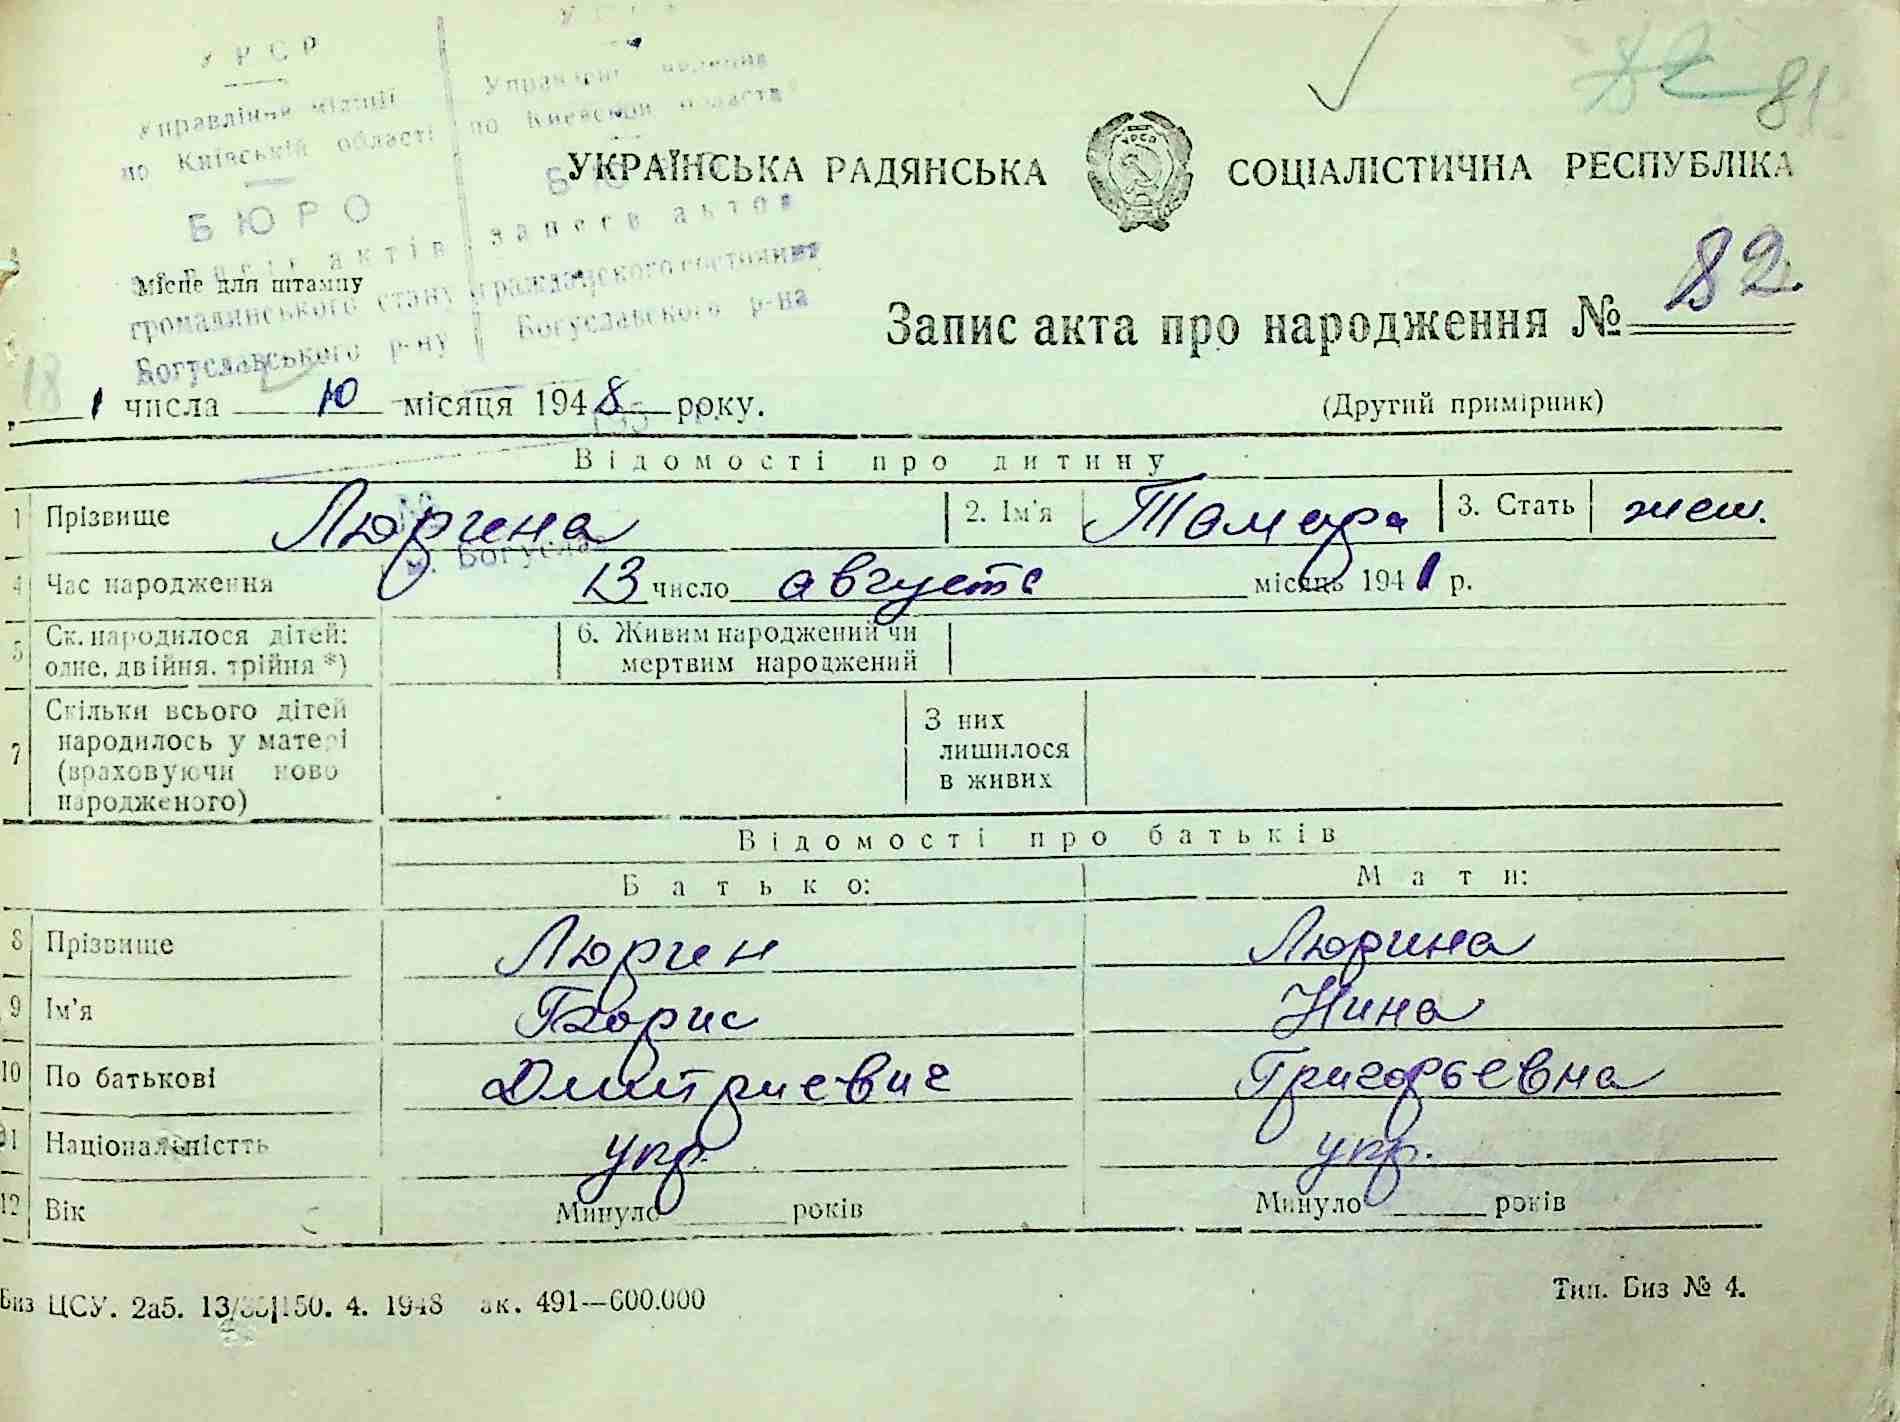 У Р С Р
Управління міліції
по Київській області
по Киевской области
Б Ю Р О
запису актів
записи актов
громадянського стану
гражданского состояния
Богуславського р-ну
Богуславского р-на
82 81
УКРАЇНСЬКА РАДЯНСЬКА СОЦІАЛІСТИЧНА РЕСПУБЛІКА
Місце для штампу
Запис акта про народження № 82.
1 числа 10 місяця 1948 року.
(Другий примірник)
Відомості про дитину
1 Прізвище Люргена 2. Ім'я Тамара 3. Стать жен.
м. Богуслав
4 Час народження 13 число августа місяць 1941 р.
5 Ск. народилося дітей: одне, двійня, трійня *) 6. Живим народжений чи мертвим народжений
7 Скільки всього дітей народилось у матері (враховуючи ново народженого) З них лишилося в живих
Відомості про батьків
Батько: Мати:
8 Прізвище Люрген Люргина
9 Ім'я Борис Нина
10 По батькові Дмитриевич Григорьевна
11 Національністть укр. укр.
12 Вік Минуло років Минуло років
Биз ЦСУ. 2аб. 150. 4. 1948 зк. 491—600.000
Тип. Биз № 4.